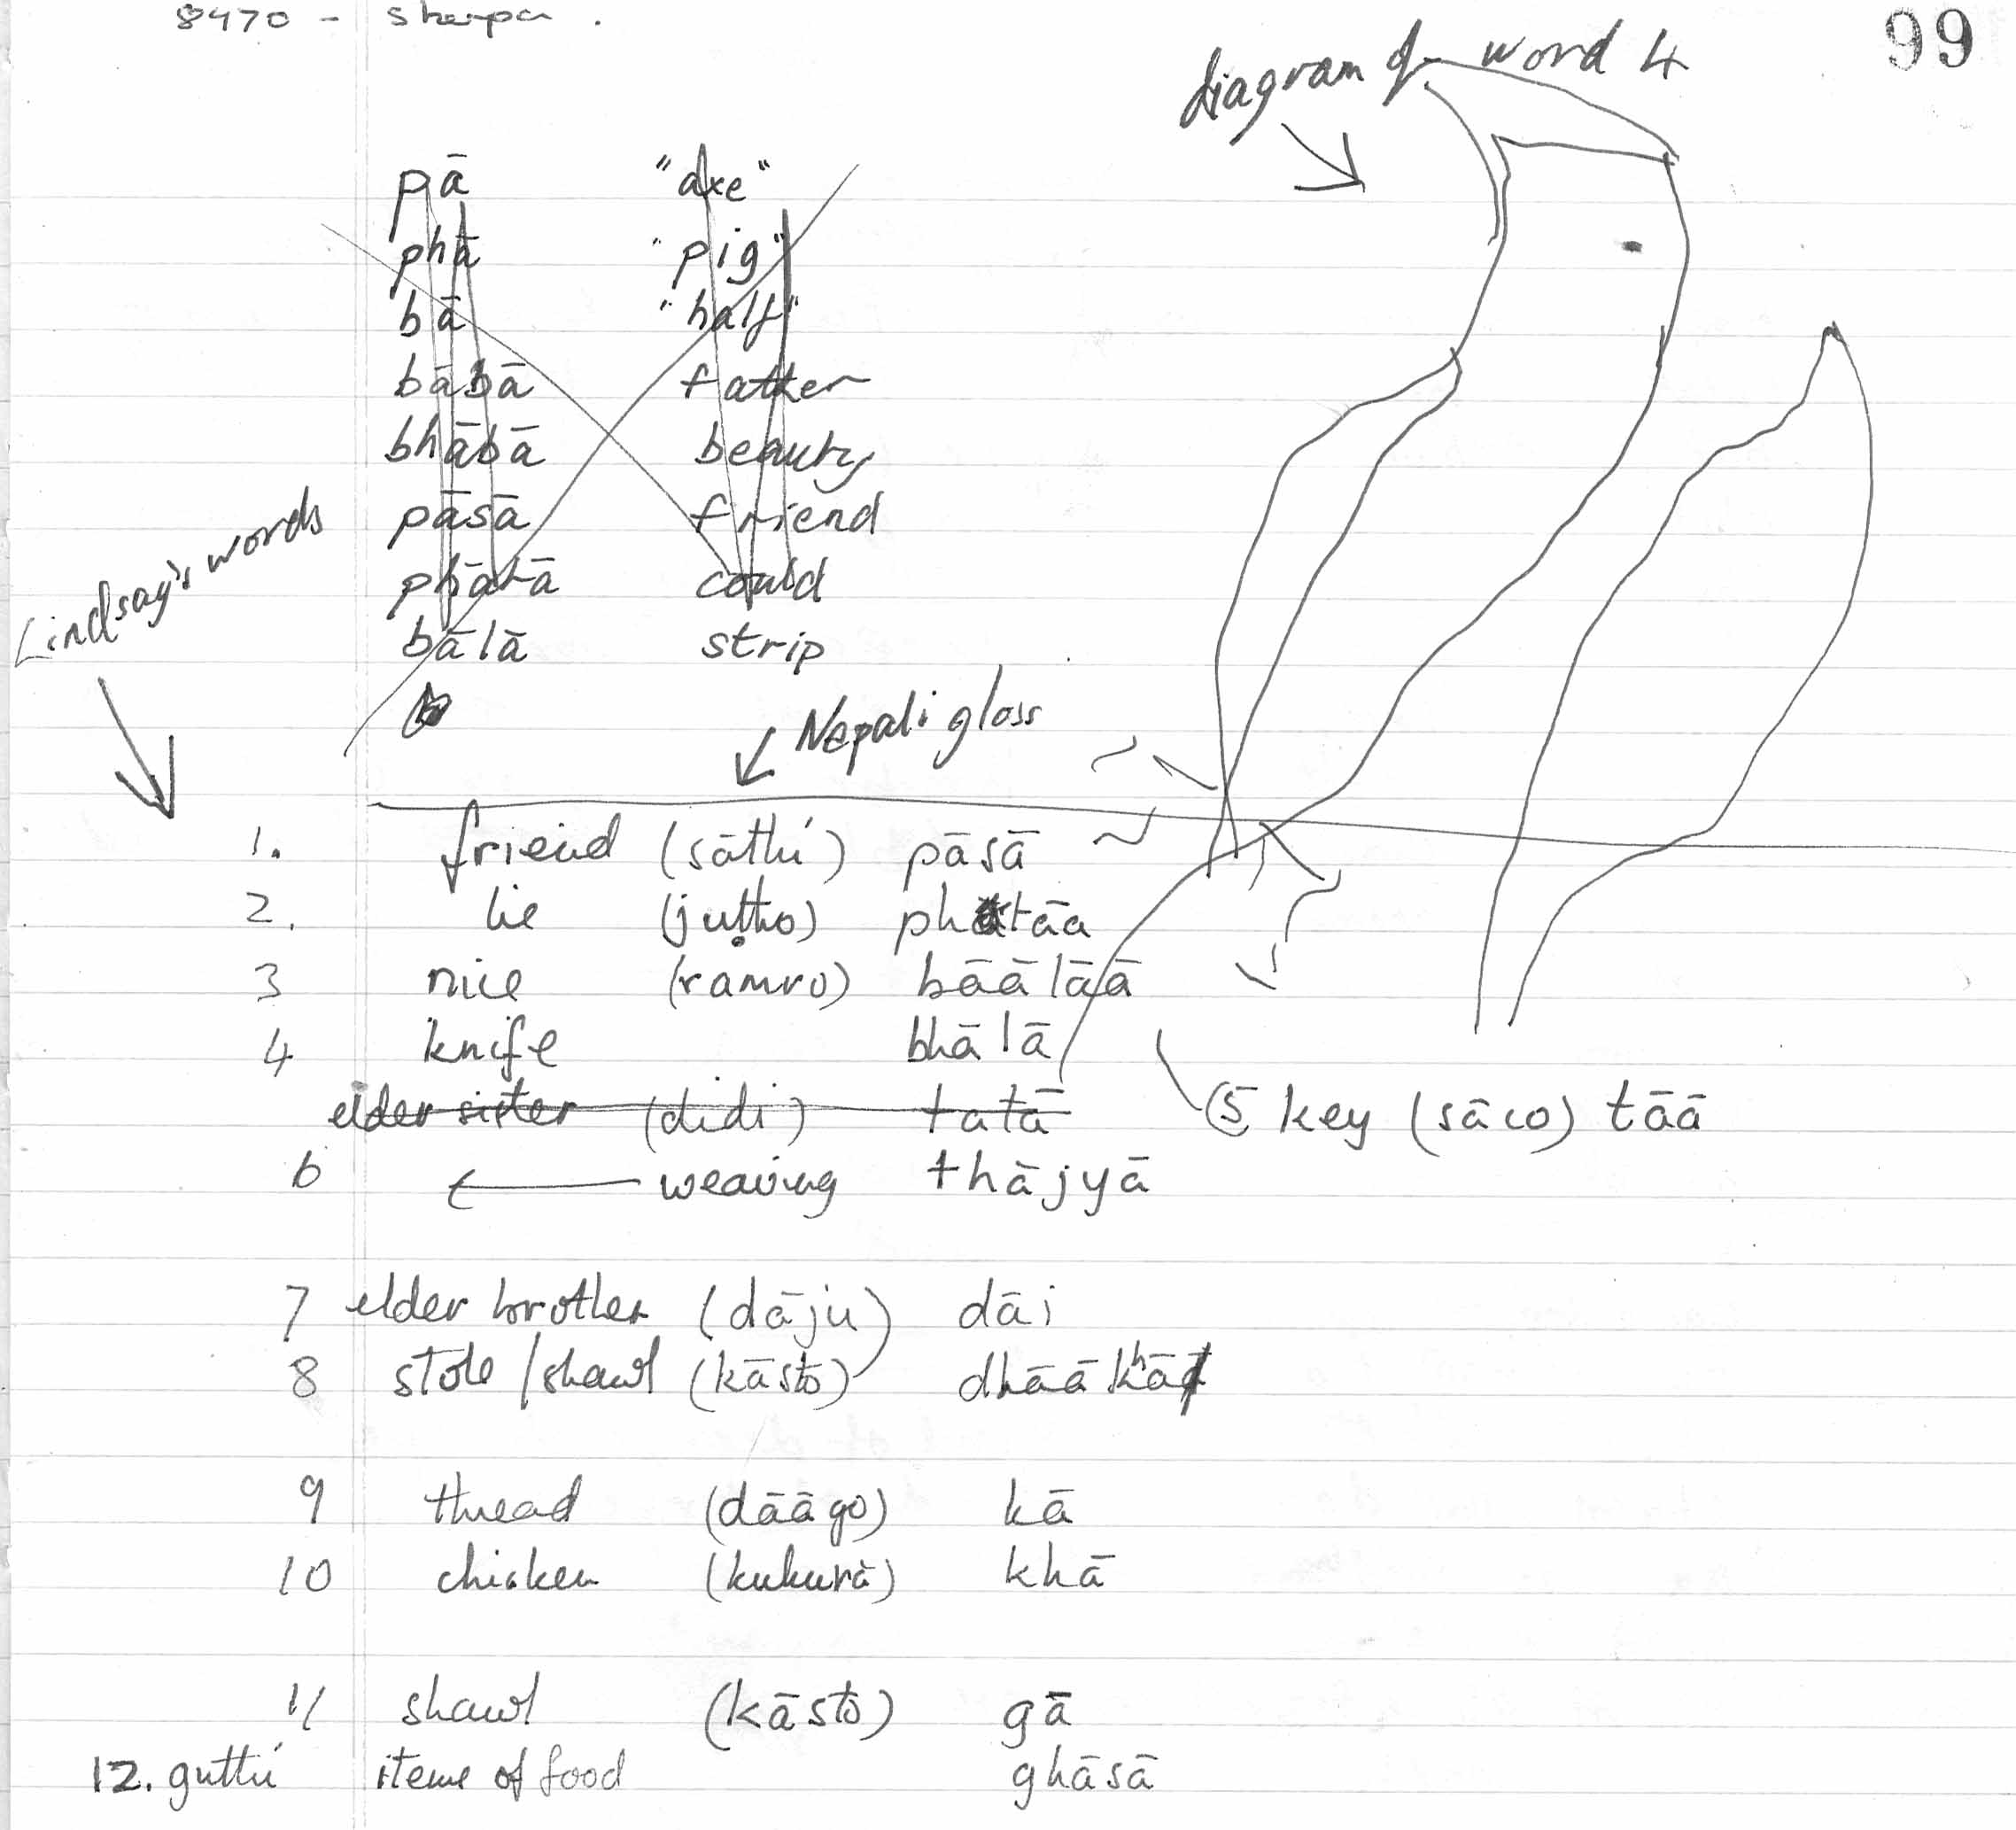 8470 - Sherpa.
99
diagram of word 4
pā "axe"
phā "pig"
bā "half"
bābā father
bhābā beauty
pāsā friend
phātā could
bālā strip
Lindsay's words
Nepali gloss
1. friend (sāthi) pāsā
2. lie (juṭho) phatāa
3 nice (ramro) bāālāā
4 knife bhālā
elder sister (didi) tatā
5 key (sāco) tāā
6 weaving thājyā
7 elder brother (dāju) dāi
8 stole/shawl (kāsto) dhāākhā
9 thread (dāāgo) kā
10 chicken (kukurā) khā
11 shawl (kāsto) gā
12. guthi items of food ghāsā